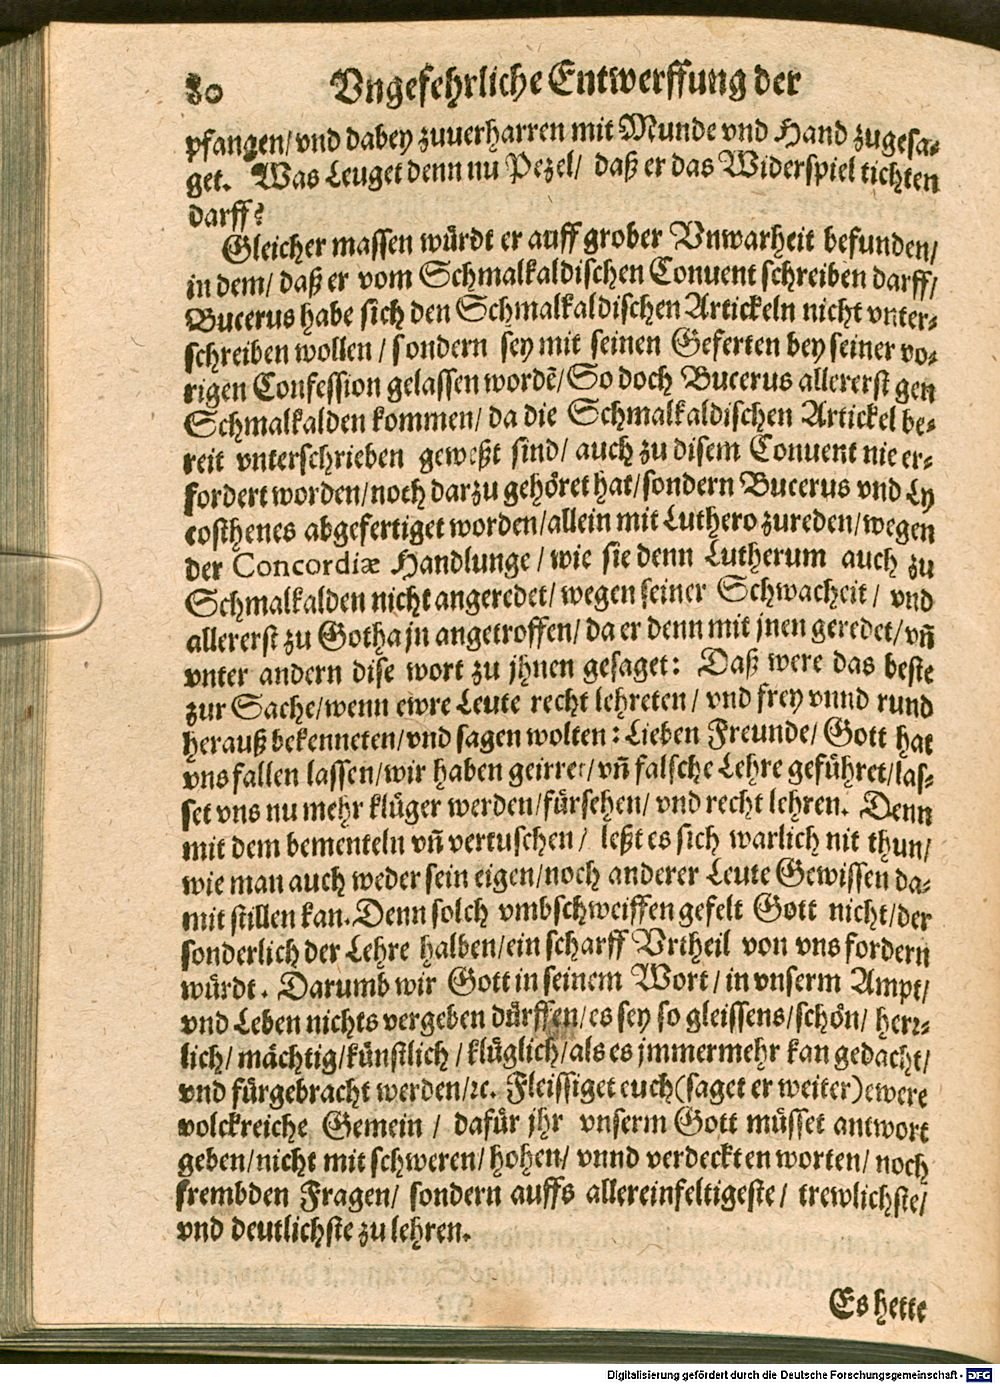 80 Vngefehrliche Entwerffung der
pfangen/ vnd dabey zuuerharren mit Munde vnd Hand zugesa⸗
get. Was Leuget denn nu Pezel/ daß er das Widerspiel tichten
darff?
Gleicher massen würdt er auff grober Vnwarheit befunden/
in dem/ daß er vom Schmalkaldischen Conuent schreiben darff/
Bucerus habe sich den Schmalkaldischen Artickeln nicht vnter⸗
schreiben wollen/ sondern sey mit seinen Geferten bey seiner vo⸗
rigen Confession gelassen wordẽ/ So doch Bucerus allererst gen
Schmalkalden kommen/ da die Schmalkaldischen Artickel be⸗
reit vnterschrieben geweßt sind/ auch zu disem Conuent nie er⸗
fordert worden/ noch darzu gehöret hat/ sondern Bucerus vnd Ly
costhenes abgefertiget worden/ allein mit Luthero zureden/ wegen
der Concordiæ Handlunge/ wie sie denn Lutherum auch zu
Schmalkalden nicht angeredet/ wegen seiner Schwacheit/ vnd
allererst zu Gotha jn angetroffen/ da er denn mit jnen geredet/ vñ
vnter andern dise wort zu jhnen gesaget: Daß were das beste
zur Sache/ wenn ewre Leute recht lehreten/ vnd frey vnnd rund
herauß bekenneten/ vnd sagen wolten: Lieben Freunde/ Gott hat
vns fallen lassen/ wir haben geirret/ vñ falsche Lehre geführet/ las⸗
set vns nu mehr klüger werden/ fürsehen/ vnd recht lehren. Denn
mit dem bementeln vñ vertuschen/ leßt es sich warlich nit thun/
wie man auch weder sein eigen/ noch anderer Leute Gewissen da⸗
mit stillen kan. Denn solch vmbschweiffen gefelt Gott nicht/ der
sonderlich der Lehre halben/ ein scharff Vrtheil von vns fordern
würdt. Darumb wir Gott in seinem Wort/ in vnserm Ampt/
vnd Leben nichts vergeben dürffen/ es sey so gleissens/ schön/ herꝛ⸗
lich/ mächtig/ künstlich/ klüglich/ als es jmmermehr kan gedacht/
vnd fürgebracht werden/ ꝛc. Fleissiget euch (saget er weiter) ewere
volckreiche Gemein/ dafür jhr vnserm Gott müsset antwort
geben/ nicht mit schweren/ hohen/ vnnd verdeckten worten/ noch
frembden Fragen/ sondern auffs allereinfeltigeste/ trewlichste/
vnd deutlichste zu lehren.
Es hette
Digitalisierung gefördert durch die Deutsche Forschungsgemeinschaft - DFG